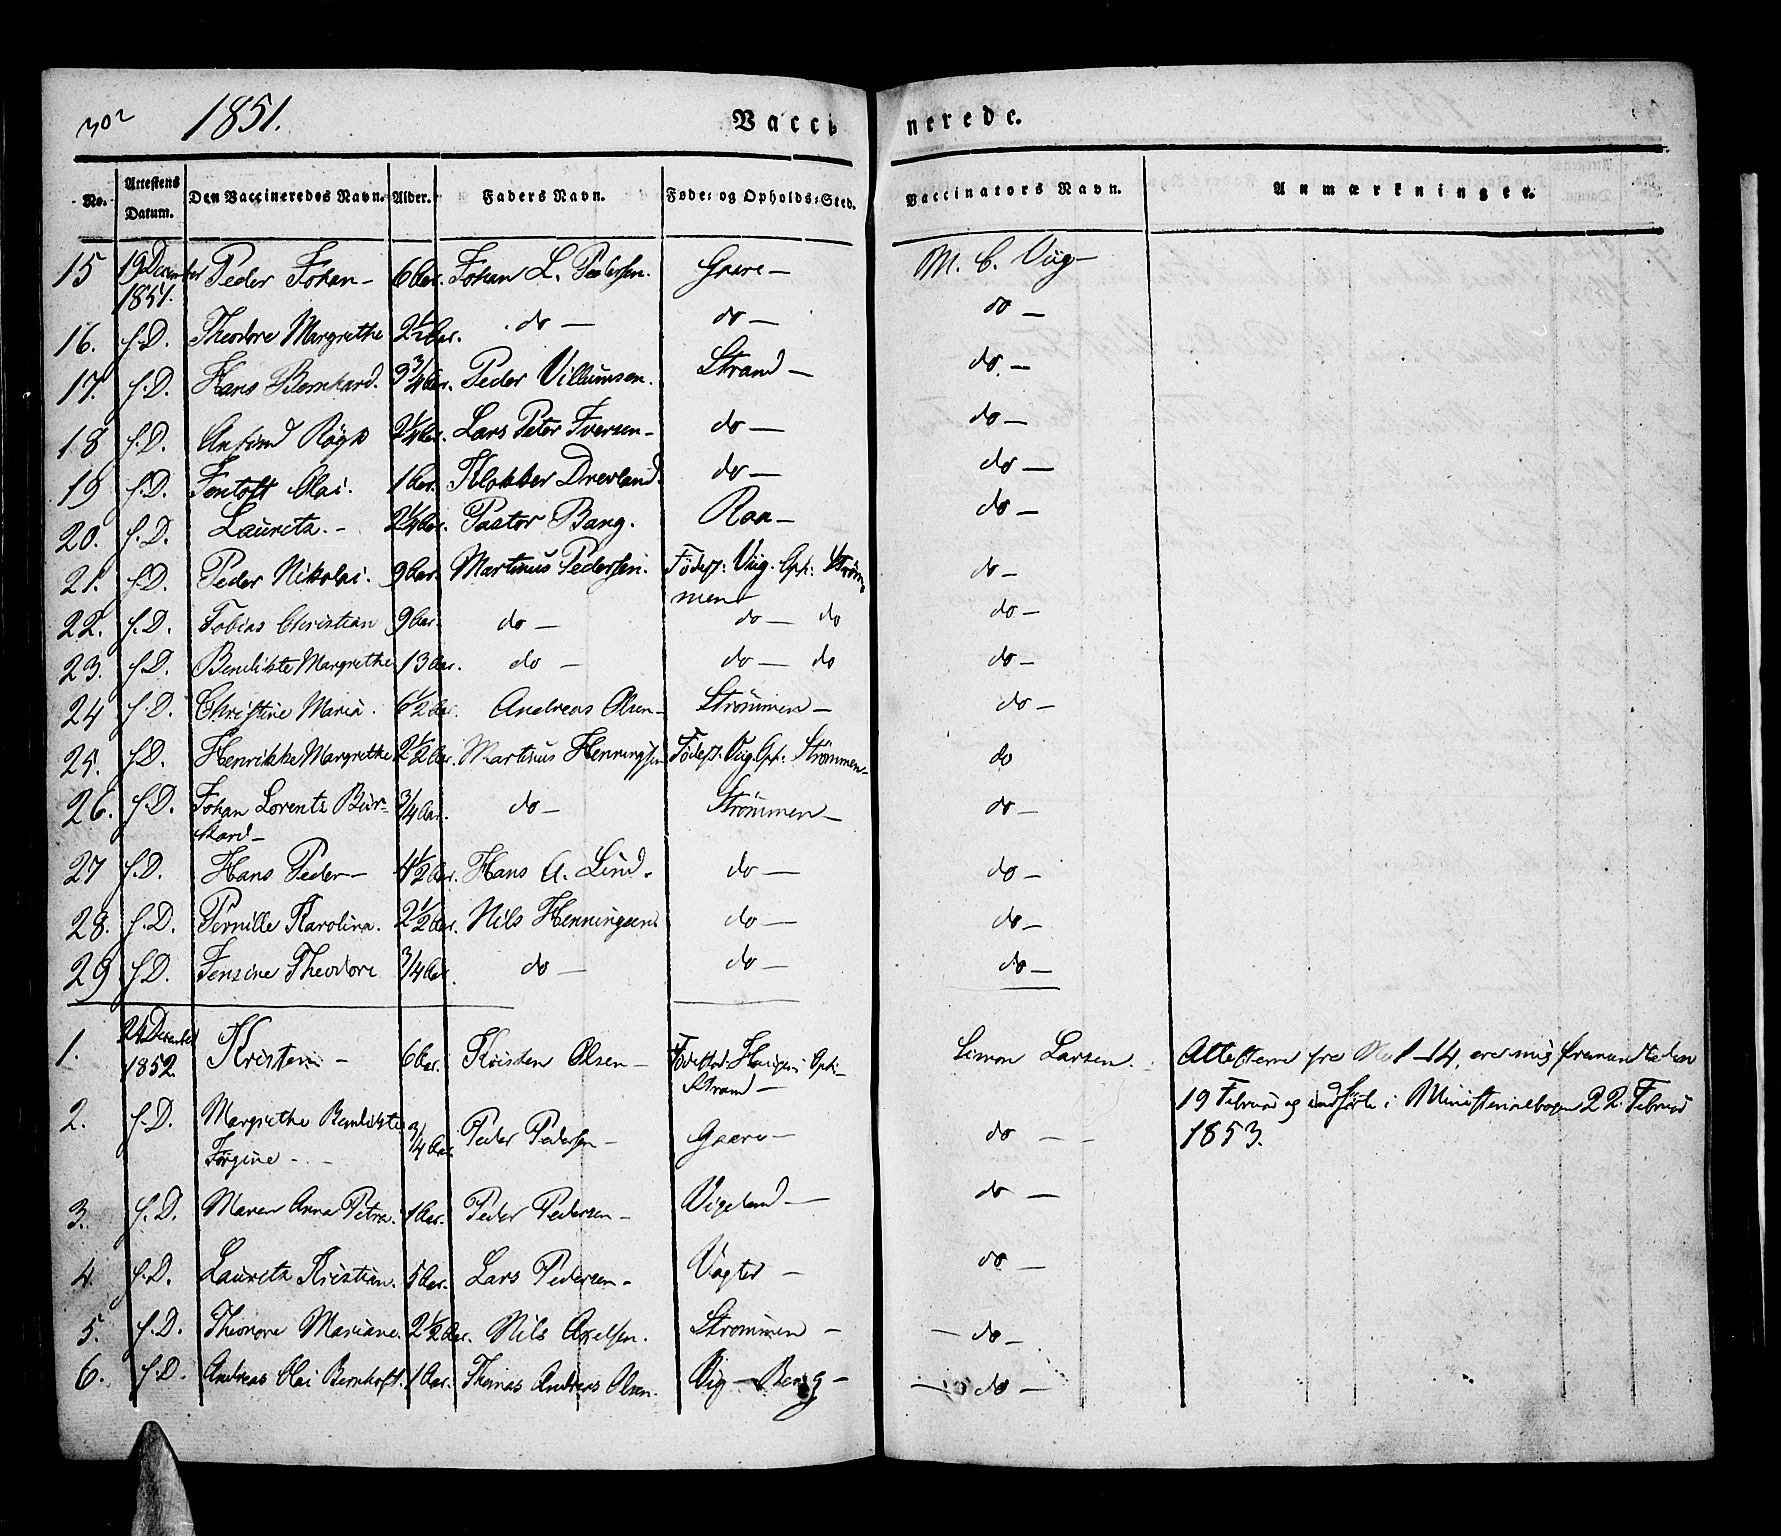 302 1851. Vaccinerede.
No. Attestens Datum. Den Vaccineredes Navn. Alder. Faders Navn. Føde- og Opholds-Sted. Vaccinators Navn. Anmærkninger.
15 19 December 1851. Peder Johan – 6 Aar. Johan L. Pedersen. Gaare – M. C. Viig –
16. s.D. Theodore Margrethe 2 1/2 Aar. do – do – do –
17. s.D. Hans Bernhard. 3 3/4 Aar. Peder Villumsen. Strand – do. –
18 s.D. 2 1/4 Aar. Lars Peter Iversen – do – do –
19 s.D. Jentoft Olai. 1 Aar. Klokker Drevland. do – do –
20. s.D. Lauritz. – 2 1/4 Aar. Pastor Bang. Raa – do –
21. s.D. Peder Nikolai. 9 Aar. Martinus Pedersen. Fødest: Viig. Oph: Strøm-
men – do –
22. s.D. Tobias Christian 9 Aar. do – do – do do –
23. s.D. Bendikte Margrethe 13 Aar. do – do – do do –
24 s.D. Christine Maria. 6 1/2 Aar. Andreas Olsen – Strømmen – do –
25. s.D. Henrikke Margrethe 2 1/2 Aar. Martinus Henningsen Fødest: Viig. Oph: Strømmen – do
26. s.D. Johan Lorents Bur-
kard – 3/4 Aar. do – Strømmen – do –
27 s.D. Hans Peder – 4 1/2 Aar. Hans A. Lind. do – do –
28. s.D. Pernille Karolina. 2 1/2 Aar. Nils Henningsen do – do –
29 s.D. Jensine Theodore 3/4 Aar. do – do – do –
1. 24 December 1852. Kristen – 6 Aar. Kristen Olsen – Oph:
Strand – Simon Larsen. Attesterne fra No 1–14, ere mig fremsendte den
19 Februar og indførte i Ministerialbogen 22 Februar
1853.
2. s.D. Margrethe Bendikte
Jørgine – 3/4 Aar. Peder Pedersen – Gaare – do –
3. s.D. Maren Anna Petra. 1 Aar. Peder Pedersen – Vigeland – do –
4. s.D. Lauritz Kristian. 5 Aar. Lars Pedersen – Vagter – do –
5. s.D. Theodore Mariane. 2 1/2 Aar. Nils Axelsen. Strømmen – – do –
6. s.D. Andreas Olai Bernhoft. 1 Aar. Thomas Andreas Olsen. Viig – Berg – – do –